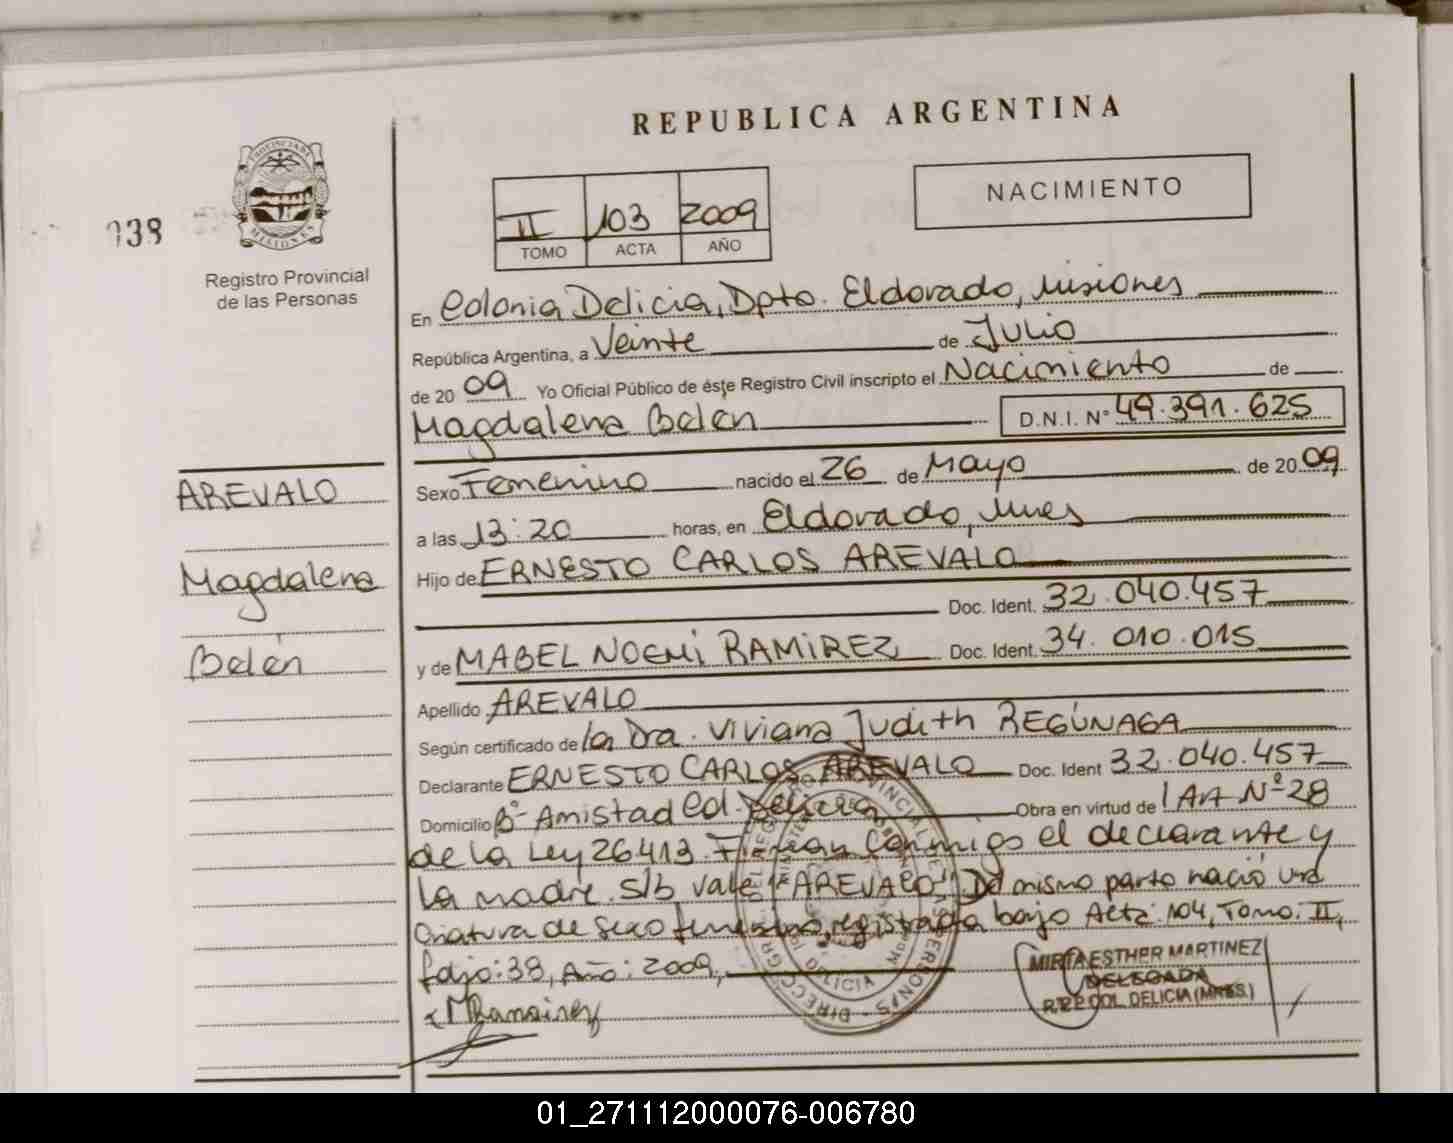 REPUBLICA ARGENTINA
NACIMIENTO
038
PROVINCIA DE
MISIONES
Registro Provincial
de las Personas
II 103 2009
TOMO ACTA AÑO
En Colonia Delicia, Dpto. Eldorado, Misiones
República Argentina, a Veinte de Julio
de 2009 Yo Oficial Público de éste Registro Civil inscripto el Nacimiento de
Magdalena Belén D.N.I. N° 49.391.625
AREVALO
Magdalena
Belén
Sexo Femenino nacido el 26 de Mayo de 2009
a las 13:20 horas, en Eldorado, Mnes
Hijo de ERNESTO CARLOS AREVALO
Doc. Ident. 32.040.457
y de MABEL NOEMÍ RAMIREZ Doc. Ident. 34.010.015
Apellido AREVALO
Según certificado de la Dra. Viviana Judith REGÚNAGA
Declarante ERNESTO CARLOS AREVALO Doc. Ident 32.040.457
Domicilio B° Amistad Col. Delicia Obra en virtud de Art N° 28
de la Ley 26413. Firman conmigo el declarante y
la madre. s/b vale "AREVALO" Del mismo parto nació una
criatura de sexo femenino, registrada bajo Acta: 104, Tomo: II,
folio: 38, Año: 2009,
MRamirez
MIRTA ESTHER MARTINEZ
DELEGADA
R.P.P. COL. DELICIA (MNES.)
01_271112000076-006780